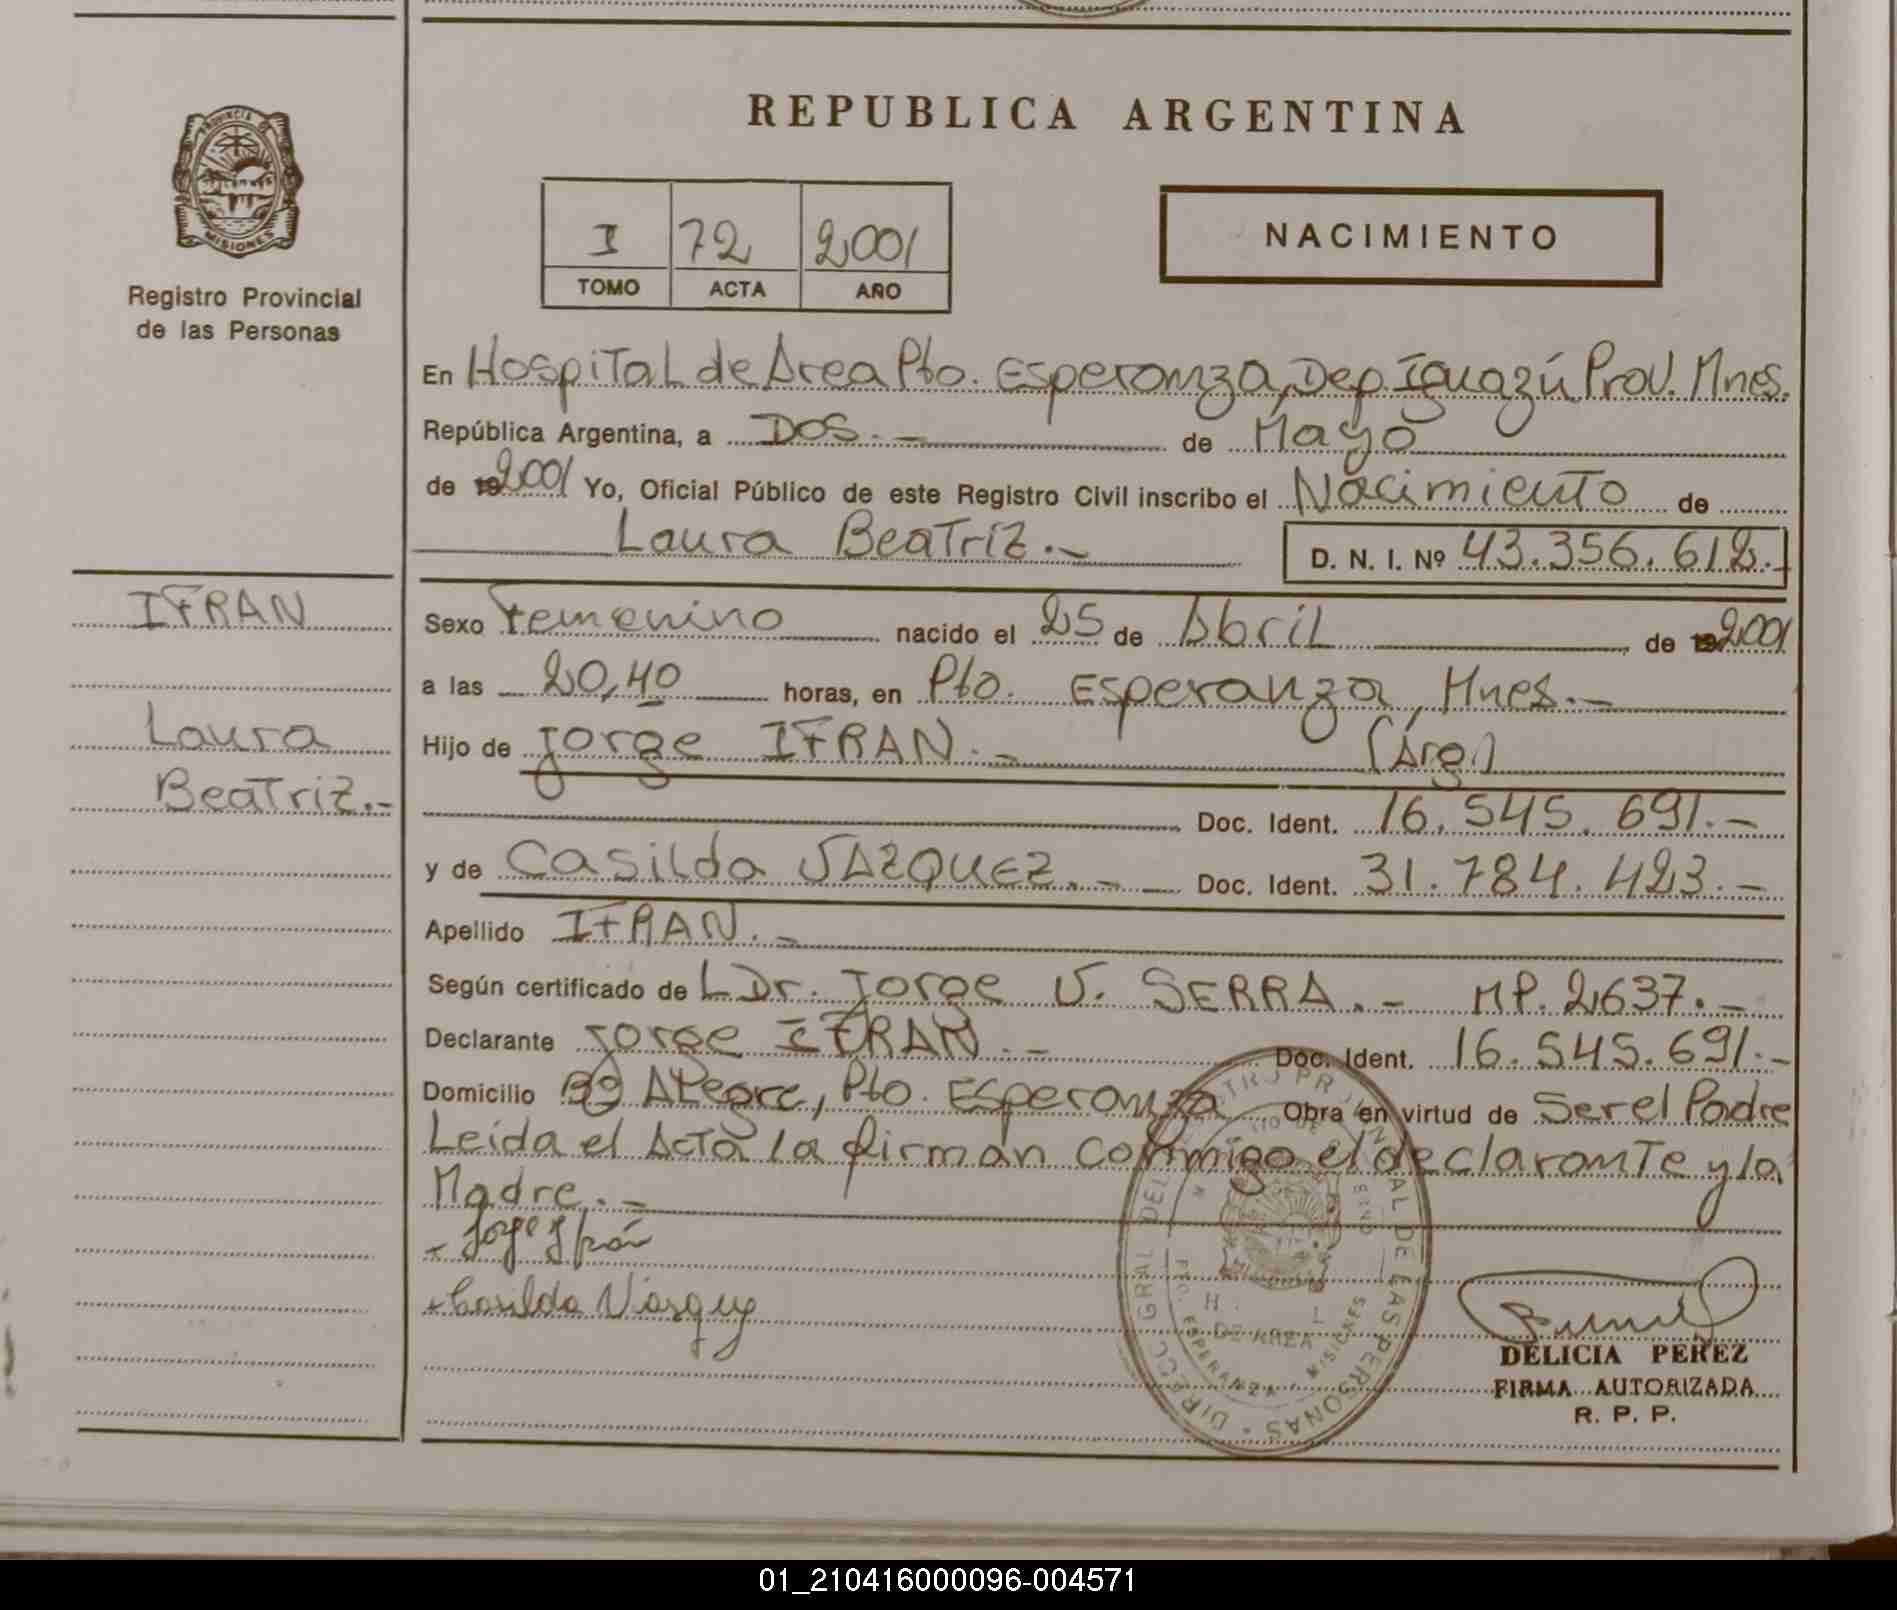 REPUBLICA ARGENTINA
PROVINCIA DE
MISIONES
Registro Provincial
de las Personas
I 72 2001
TOMO ACTA AÑO
NACIMIENTO
En Hospital de Area Pto. Esperanza, Dep. Iguazú Prov. Mnes.
República Argentina, a Dos.- de Mayo
de 192001 Yo, Oficial Público de este Registro Civil inscribo el Nacimiento de
Laura Beatriz.-
D. N. I. Nº 43.356.612.-
IFRAN
Laura
Beatriz.-
Sexo Femenino nacido el 25 de Abril de 192001
a las 20,40 horas, en Pto. Esperanza, Mnes.-
Hijo de Jorge IFRAN.- (Arg.)
Doc. Ident. 16.545.691.-
y de Casilda VAZQUEZ.- Doc. Ident. 31.784.423.-
Apellido IFRAN.-
Según certificado de L Dr. Jorge V. SERRA.- MP. 2637.-
Declarante Jorge IFRAN.- Doc. Ident. 16.545.691.-
Domicilio Bº Alegre, Pto. Esperanza Obra en virtud de Ser el Padre
Leida el Acta la firman conmigo el declarante y la
Madre.-
Jorge Ifrán
Casilda Vásquez
DIRECC GRAL DEL REGISTRO PROVINCIAL DE LAS PERSONAS
DE AREA
PTO. ESPERANZA - MISIONES
DELICIA PEREZ
FIRMA AUTORIZADA
R. P. P.
01_210416000096-004571